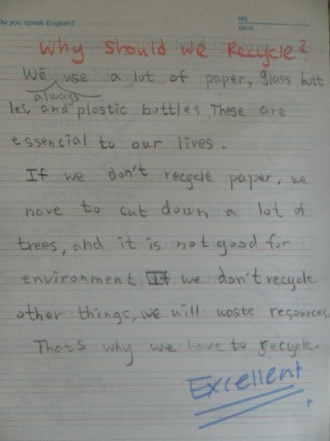 Do you speak English?
NO.
DATE.
Why Should We Recycle?
We use a lot of paper, glass bott
always
les and plastic bottles, These are
essencial to our lives.
If we don't recycle paper, we
have to cut down a lot of
trees, and it is not good for
environment. If we don't recycle
other things, we will waste resources.
That's why we have to recycle.
Excellent